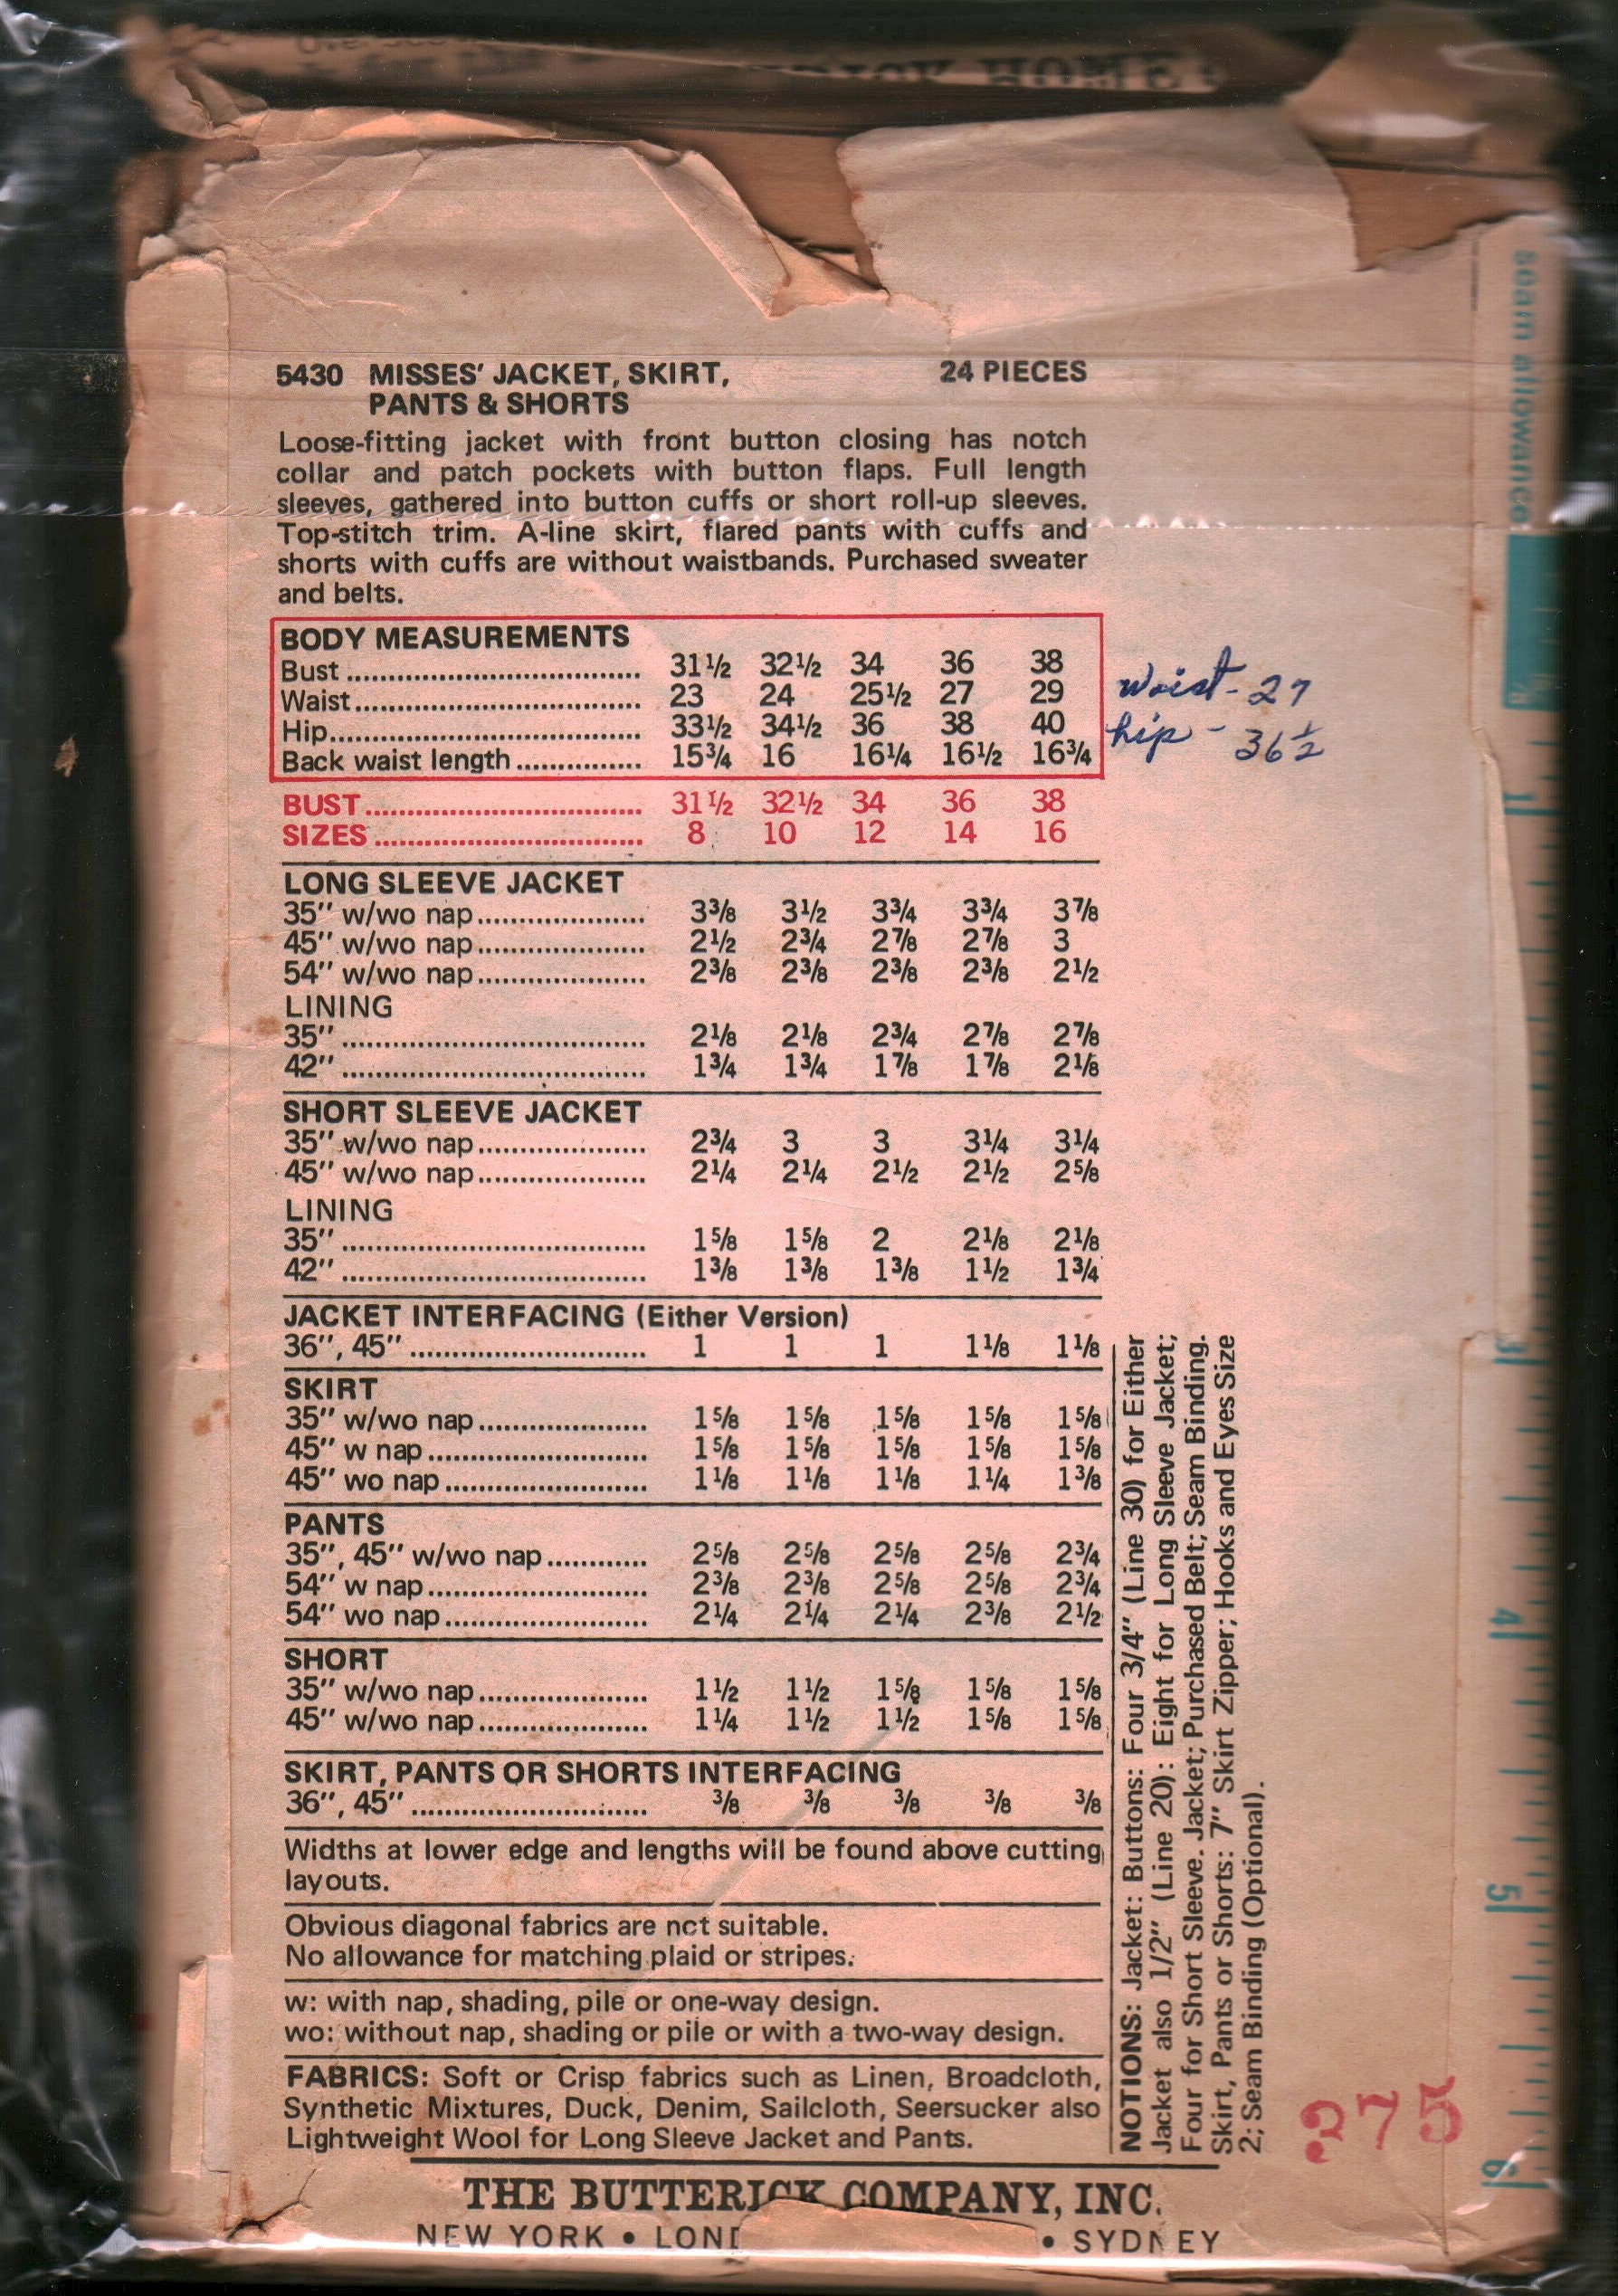 5430 MISSES' JACKET, SKIRT, 24 PIECES
PANTS & SHORTS
Loose-fitting jacket with front button closing has notch
collar and patch pockets with button flaps. Full length
sleeves, gathered into button cuffs or short roll-up sleeves.
Top-stitch trim. A-line skirt, flared pants with cuffs and
shorts with cuffs are without waistbands. Purchased sweater
and belts.
BODY MEASUREMENTS
Bust 31½ 32½ 34 36 38
Waist 23 24 25½ 27 29
Hip 33½ 34½ 36 38 40
Back waist length 15¾ 16 16¼ 16½ 16¾
Waist - 27
hip - 36½
BUST 31½ 32½ 34 36 38
SIZES 8 10 12 14 16
LONG SLEEVE JACKET
35" w/wo nap 3⅜ 3½ 3¾ 3¾ 3⅞
45" w/wo nap 2½ 2¾ 2⅞ 2⅞ 3
54" w/wo nap 2⅜ 2⅜ 2⅜ 2⅜ 2½
LINING
35" 2⅛ 2⅛ 2¾ 2⅞ 2⅞
42" 1¾ 1¾ 1⅞ 1⅞ 2⅛
SHORT SLEEVE JACKET
35" w/wo nap 2¾ 3 3 3¼ 3¼
45" w/wo nap 2¼ 2¼ 2½ 2½ 2⅝
LINING
35" 1⅝ 1⅝ 2 2⅛ 2⅛
42" 1⅜ 1⅜ 1⅜ 1½ 1¾
JACKET INTERFACING (Either Version)
36", 45" 1 1 1 1⅛ 1⅛
SKIRT
35" w/wo nap 1⅝ 1⅝ 1⅝ 1⅝ 1⅝
45" w nap 1⅝ 1⅝ 1⅝ 1⅝ 1⅝
45" wo nap 1⅛ 1⅛ 1⅛ 1¼ 1⅜
PANTS
35", 45" w/wo nap 2⅝ 2⅝ 2⅝ 2⅝ 2¾
54" w nap 2⅜ 2⅜ 2⅝ 2⅝ 2¾
54" wo nap 2¼ 2¼ 2¼ 2⅜ 2½
SHORT
35" w/wo nap 1½ 1½ 1⅝ 1⅝ 1⅝
45" w/wo nap 1¼ 1½ 1½ 1⅝ 1⅝
SKIRT, PANTS OR SHORTS INTERFACING
36", 45" ⅜ ⅜ ⅜ ⅜ ⅜
Widths at lower edge and lengths will be found above cutting
layouts.
Obvious diagonal fabrics are not suitable.
No allowance for matching plaid or stripes.
w: with nap, shading, pile or one-way design.
wo: without nap, shading or pile or with a two-way design.
FABRICS: Soft or Crisp fabrics such as Linen, Broadcloth,
Synthetic Mixtures, Duck, Denim, Sailcloth, Seersucker also
Lightweight Wool for Long Sleeve Jacket and Pants.
NOTIONS: Jacket: Buttons: Four 3/4" (Line 30) for Either
Jacket also 1/2" (Line 20): Eight for Long Sleeve Jacket;
Four for Short Sleeve. Jacket; Purchased Belt; Seam Binding.
Skirt, Pants or Shorts: 7" Skirt Zipper; Hooks and Eyes Size
2; Seam Binding (Optional).
THE BUTTERICK COMPANY, INC.
NEW YORK • LOND • SYDNEY
275
seam allowance
5/8
1
3
4
5
6